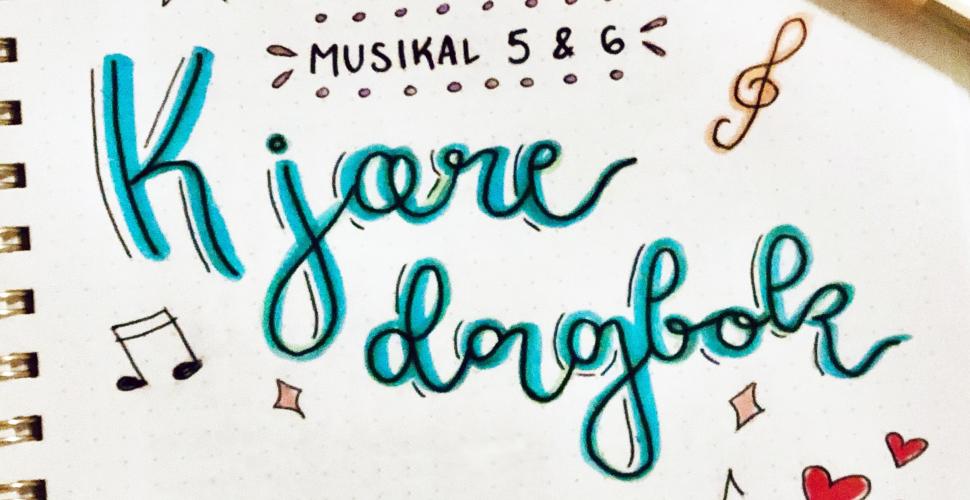 MUSIKAL 5 & 6
Kjære
dagbok